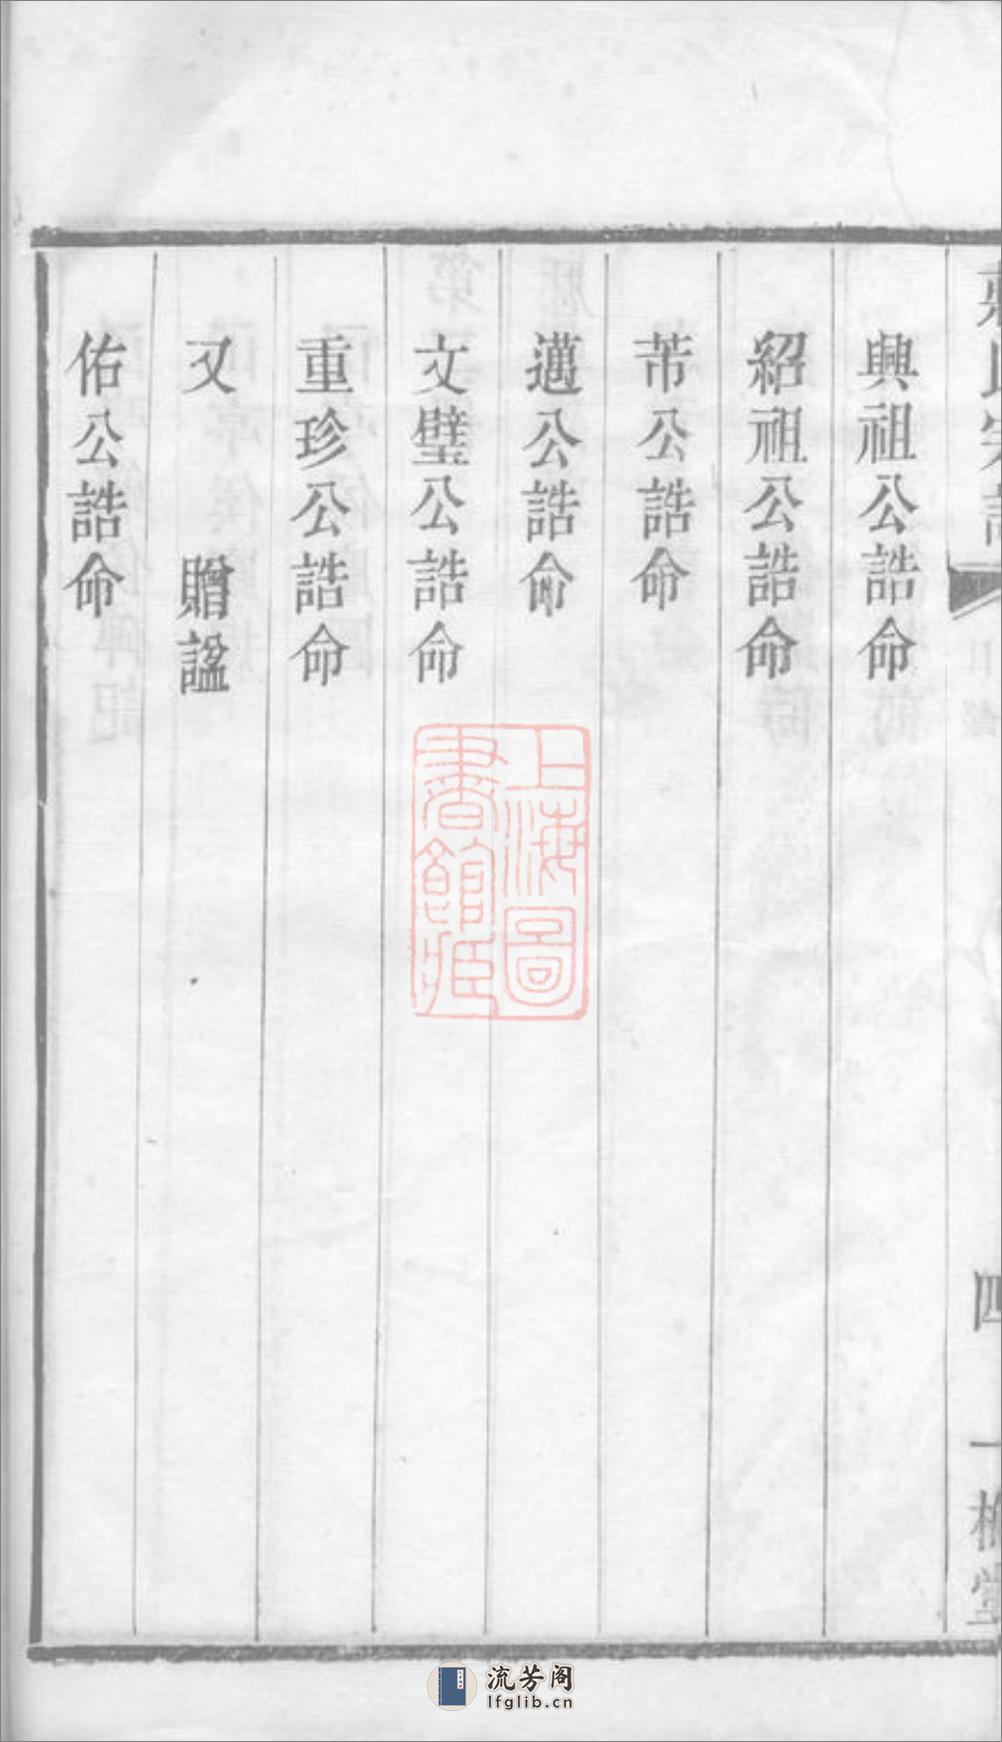 興祖公誥命
紹祖公誥命
芾公誥命
邁公誥命
文璧公誥命
重珍公誥命
又　　贈諡
佑公誥命
上海圖
書館藏
四
流芳阁
lfglib.cn